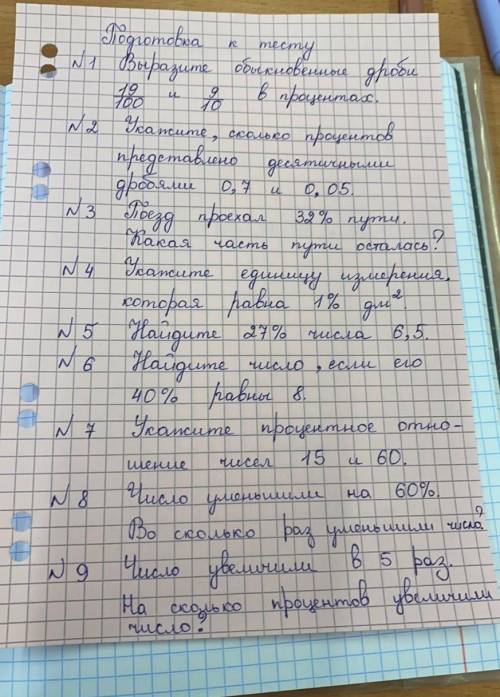 Подготовка к тесту
N1 Выразите обыкновенные дроби
19/100 и 9/10 в процентах.
N2 Укажите, сколько процентов
представлено десятичными
дробями 0,7 и 0,05.
N3 Поезд проехал 32% пути.
Какая часть пути осталась?
N4 Укажите единицу измерения,
которая равна 1% дм².
N5 Найдите 27% числа 6,5.
N6 Найдите число, если его
40% равны 8.
N7 Укажите процентное отно-
шение чисел 15 и 60.
N8 Число уменьшили на 60%.
Во сколько раз уменьшили число?
N9 Число увеличили в 5 раз.
На сколько процентов увеличили
число?